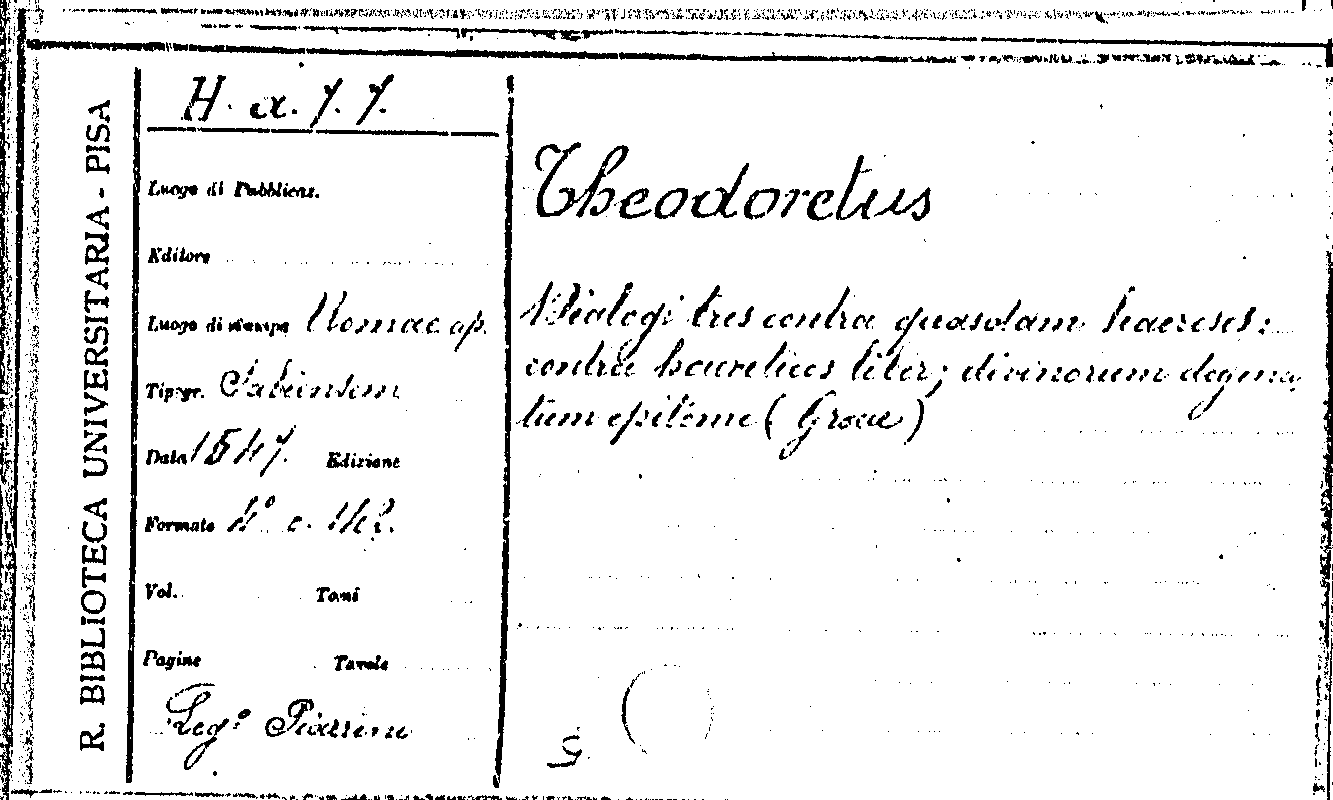 R. BIBLIOTECA UNIVERSITARIA - PISA
H. a. 7. 7.
Luogo di Pubblicaz.
Editore
Luogo di stampa Romae ap.
Tipogr. Sabiensem
Data 1547. Edizione
Formato 4° c. 142.
Vol. Tomi
Pagine Tavole
Leg.° Piazzini
Theodoretus
Dialogi tres contra quasdam haereses:
contra haereticos liber; divinorum dogma
tum epitome (Graece)
5.